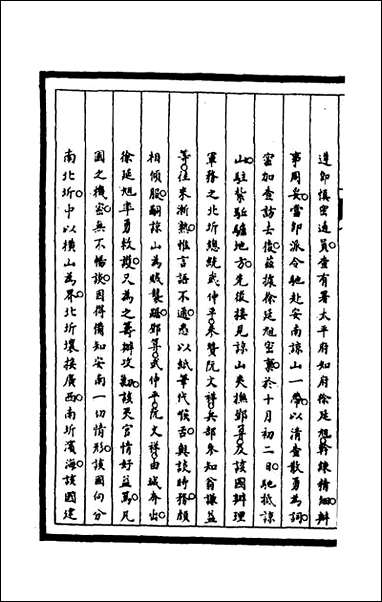 遵即慎密遴員查有署太平府知府徐延旭幹練精細辦
事周妥當即派令馳赴安南諒山一帶以清查散勇為詞
密加查訪去後茲據徐延旭密稟於十月初二日馳抵諒
山駐紮驅驢地方先後接見諒山夾撫鄧尊及該國辦理
軍務之北圻總統武仲平參贊阮文祥兵部參知翁謙益
等往來漸熟惟言語不通悉以紙筆代喉舌與談時務頗
相傾服嗣諒山為賊襲踞鄧尊武仲平阮文祥由城奔出
徐延旭率勇救護又為之籌辦攻勦該夷官情好益篤凡
國之機密無不暢談因得備知安南一切情形該國向分
南北圻中以橫山為界北圻壤接廣西南圻濱海該國建